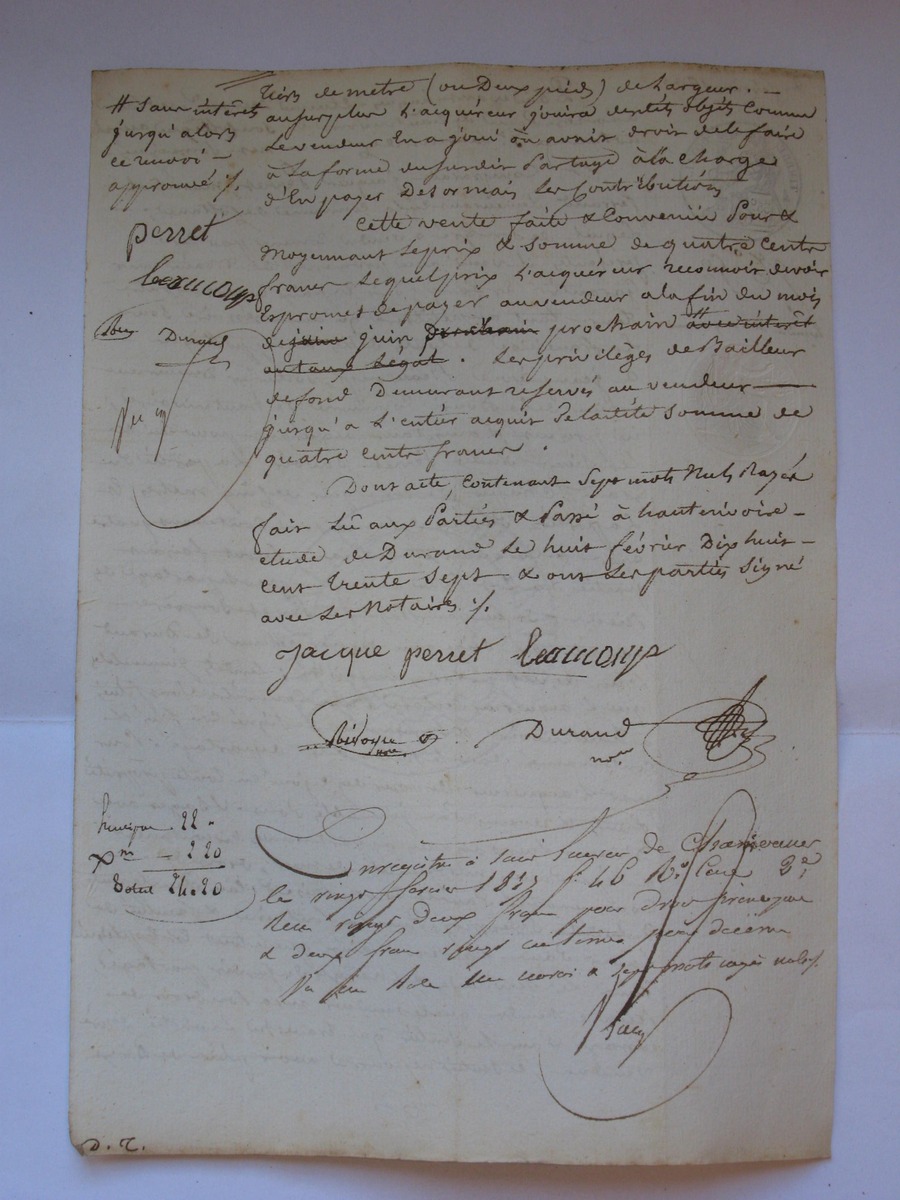 # Sans intérêt
jusqu'alors
ce renvoi
approuvé ./.
perret
beaucoup
Durand
tiers de mètre (ou Deux pieds) de Largeur. —
au surplus L'acquéreur jouira desdits objets Comme
Le vendeur En a joui ou avoir droit de le faire
à La forme du susdit Partage à la Charge
d'En payer Désormais Les Contributions
Cette vente faite & Convenüe Pour &
Moyennant Le prix & Somme de quatre Cents
francs Lequel prix L'acquéreur reconnoit devoir
Et promet de payer au vendeur a la fin du mois
de juin juin prochain prochain avec intérêt
au taux Légal. Les privilèges de Bailleur
de fond Demeurant réservés au vendeur —
jusqu'a L'entier acquit De la dite Somme de
quatre Cents francs.
Dont acte, Contenant Sept mots Nuls Rayés
fait Lû aux Parties & Passé à hauterivoire —
étude de Durand Le huit février Dix huit —
Cent trente Sept & ont Les parties Signé
avec Les Notaires ./.
Jacque perret beaucoup
Durand
nore.
principal 22 "
Xme — 2 20
Total 24.20
Enregistré à Saint Laurent de Chamousset
le vingt février 1837 f. 46 Vo. Case 3e.
Reçu vingt deux francs pour droit principal
& deux francs vingt centimes pour décime
un renvoi & sept mots rayés nuls ./.
D. T.